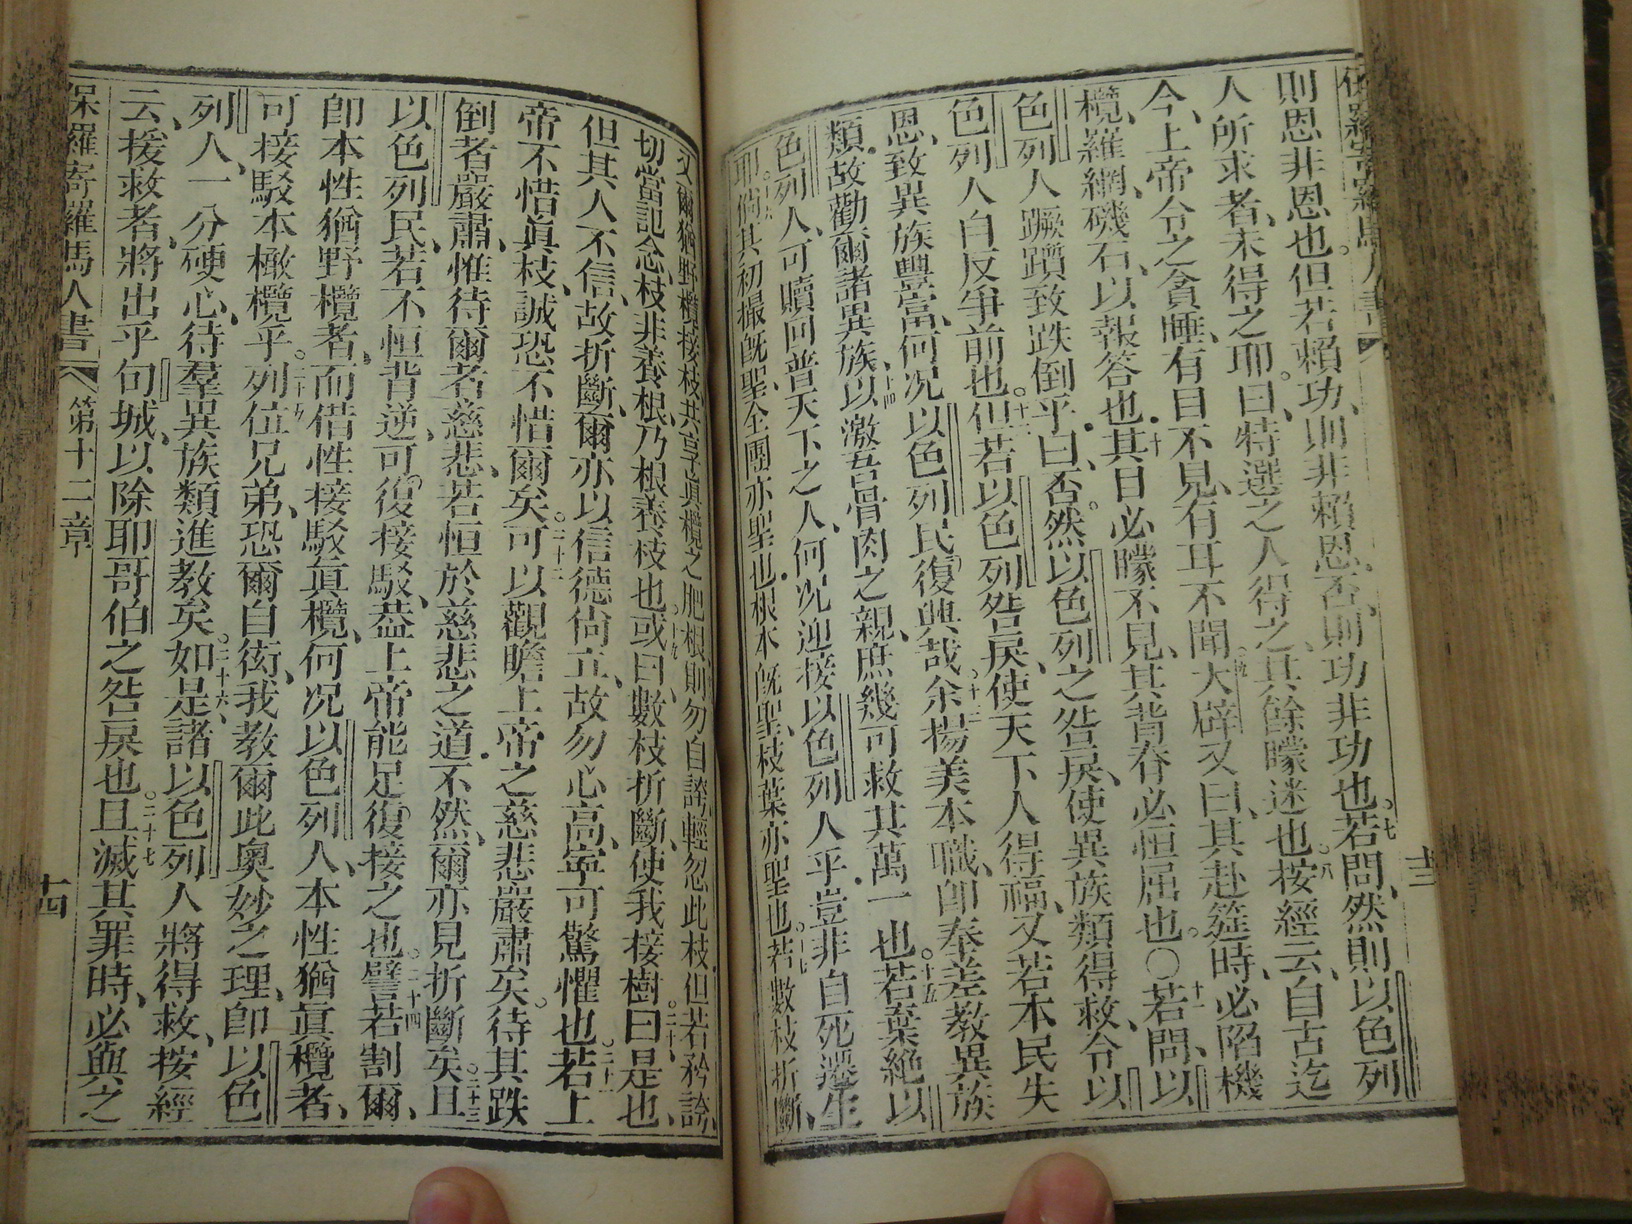 保羅寄羅馬人書
十三
則恩非恩也但若賴功則非賴恩否則功非功也七若問然則以色列
人所求者未得之耶曰特選之人得之其餘矇迷也八按經云自古迄
今上帝令之貪睡有目不見有耳不聞九大辟又曰其赴筵時必陷機
欖羅網磯石以報答也十其目必矇不見其背脊必恒屈也〇十一若問以
色列人蹶躓致跌倒乎曰否然以色列之咎戾使異族類得救令以
色列人自反爭前也十二但若以色列咎戾使天下人得福又若本民失
恩致異族豐富何况以色列民復興哉十三余揚美本職卽奉差教異族
類故勸爾諸異族十四以激吾骨肉之親庶幾可救其萬一也十五若棄絶以
色列人可贖回普天下之人何况迎接以色列人乎豈非自死還生
耶倘其初撮旣聖全團亦聖也根本旣聖枝葉亦聖也十七若數枝折斷
又爾猶野欖接枝共享眞欖之肥根則勿自誇輕忽此枝但若矜誇
切當記念枝非養根乃根養枝也十九或曰數枝折斷使我接樹二十曰是也
但其人不信故折斷爾亦以信德尙立故勿心高寧可驚懼也二十一若上
帝不惜眞枝誠恐不惜爾矣二十二可以觀瞻上帝之慈悲嚴肅矣待其跌
倒者嚴肅惟待爾者慈悲若恒於慈悲之道不然爾亦見折斷矣二十三且
以色列民若不恒背逆可復接駁葢上帝能足復接之也二十四譬若割爾
卽本性猶野欖者而借性接駁眞欖何况以色列人本性猶眞欖者
可接駁本橄欖乎二十五列位兄弟恐爾自衒我教爾此奥妙之理卽以色
列人一分硬心待羣異族類進教矣二十六如是諸以色列人將得救按經
云援救者將出乎旬城以除耶哥伯之咎戾也二十七且滅其罪時必與之
保羅寄羅馬人書 第十二章
十四